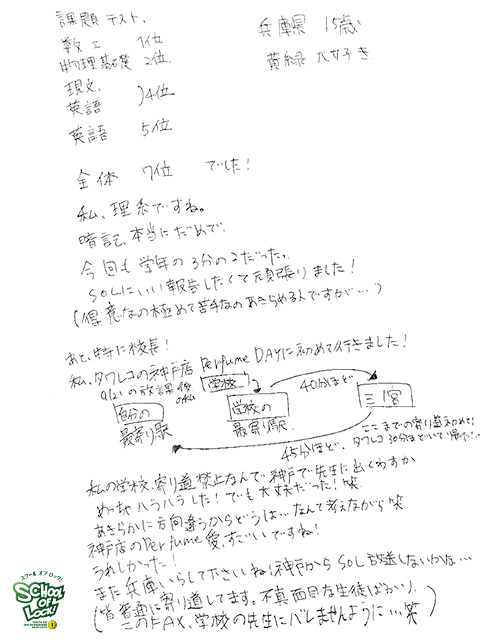 課題テスト、
兵庫県 15歳
数Ⅰ 1位
黄緑 大好き
物理基礎 2位
現文、
英語 )4位
英語 5位
全体 7位 でした!
私、理系ですね。
暗記、本当にだめで、
今回も学年の3分の2だった。
SOLにいい報告したくて頑張りました!
(得意なの極めて苦手なのあきらめる人ですが…)
あと、特に校長!
私、タワレコの神戸店 Perfume DAYに初めて行きました!
9/21の放課後の私
学校
40分ほど
自分の最寄り駅
学校の最寄り駅
三ノ宮
45分ほど、
ここまでの寄り道初めて!
タワレコ30分ほどいて帰った!
私の学校、寄り道禁止なんで神戸で先生に出くわすか
めっちゃハラハラした!でも大丈夫だった!笑
あきらかに方向違うからどうは…なんて考えながら笑
神戸店のPerfume愛、すごいですね!
うれしかった!
また兵庫いらして下さいね!神戸からSOL放送しないかな…
(皆普通に寄り道してます。不真面目な生徒ばかり)
このFAX、学校の先生にバレませんように…笑)
スクールオブロック!
SCHOOL OF LOCK!